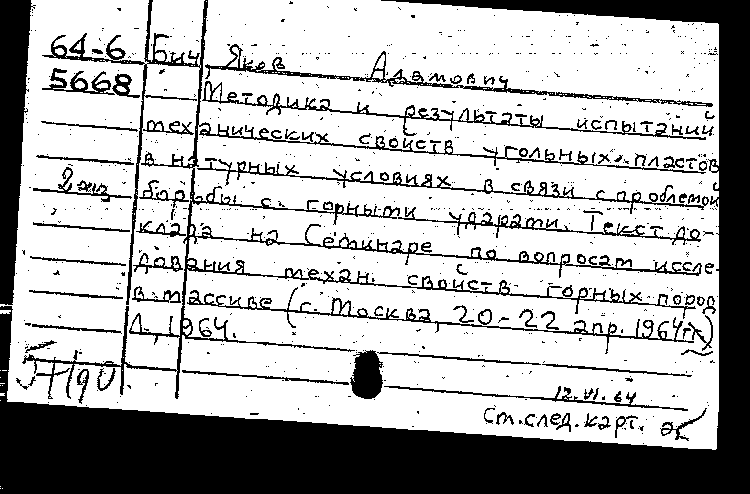 64-6 Бич, Яков Адамович
5668 Методика и результаты испытаний
механических свойств угольных пластов
в натурных условиях в связи с проблемой
2 экз борьбы с горными ударами. Текст до-
клада на Семинаре по вопросам иссле-
дования механ. свойств горных пород
в массиве (г. Москва, 20-22 апр. 1964г.)
Л., 1964.
12.VI.64
См. след. карт.